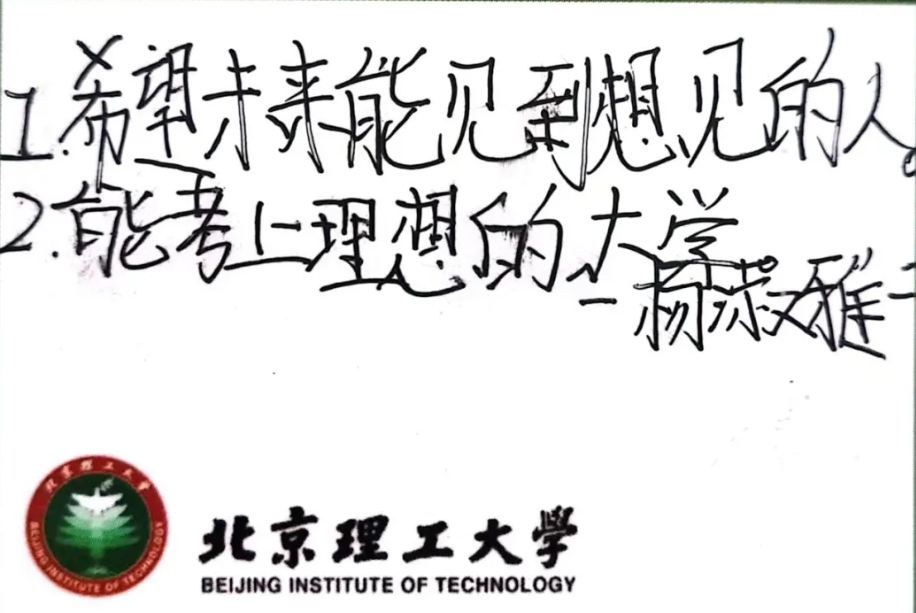 1.希望未来能见到想见的人。
2.能考上理想的大学
—杨 雅
北京理工大学
BEIJING INSTITUTE OF TECHNOLOGY
北京理工大学
BEIJING INSTITUTE OF TECHNOLOGY